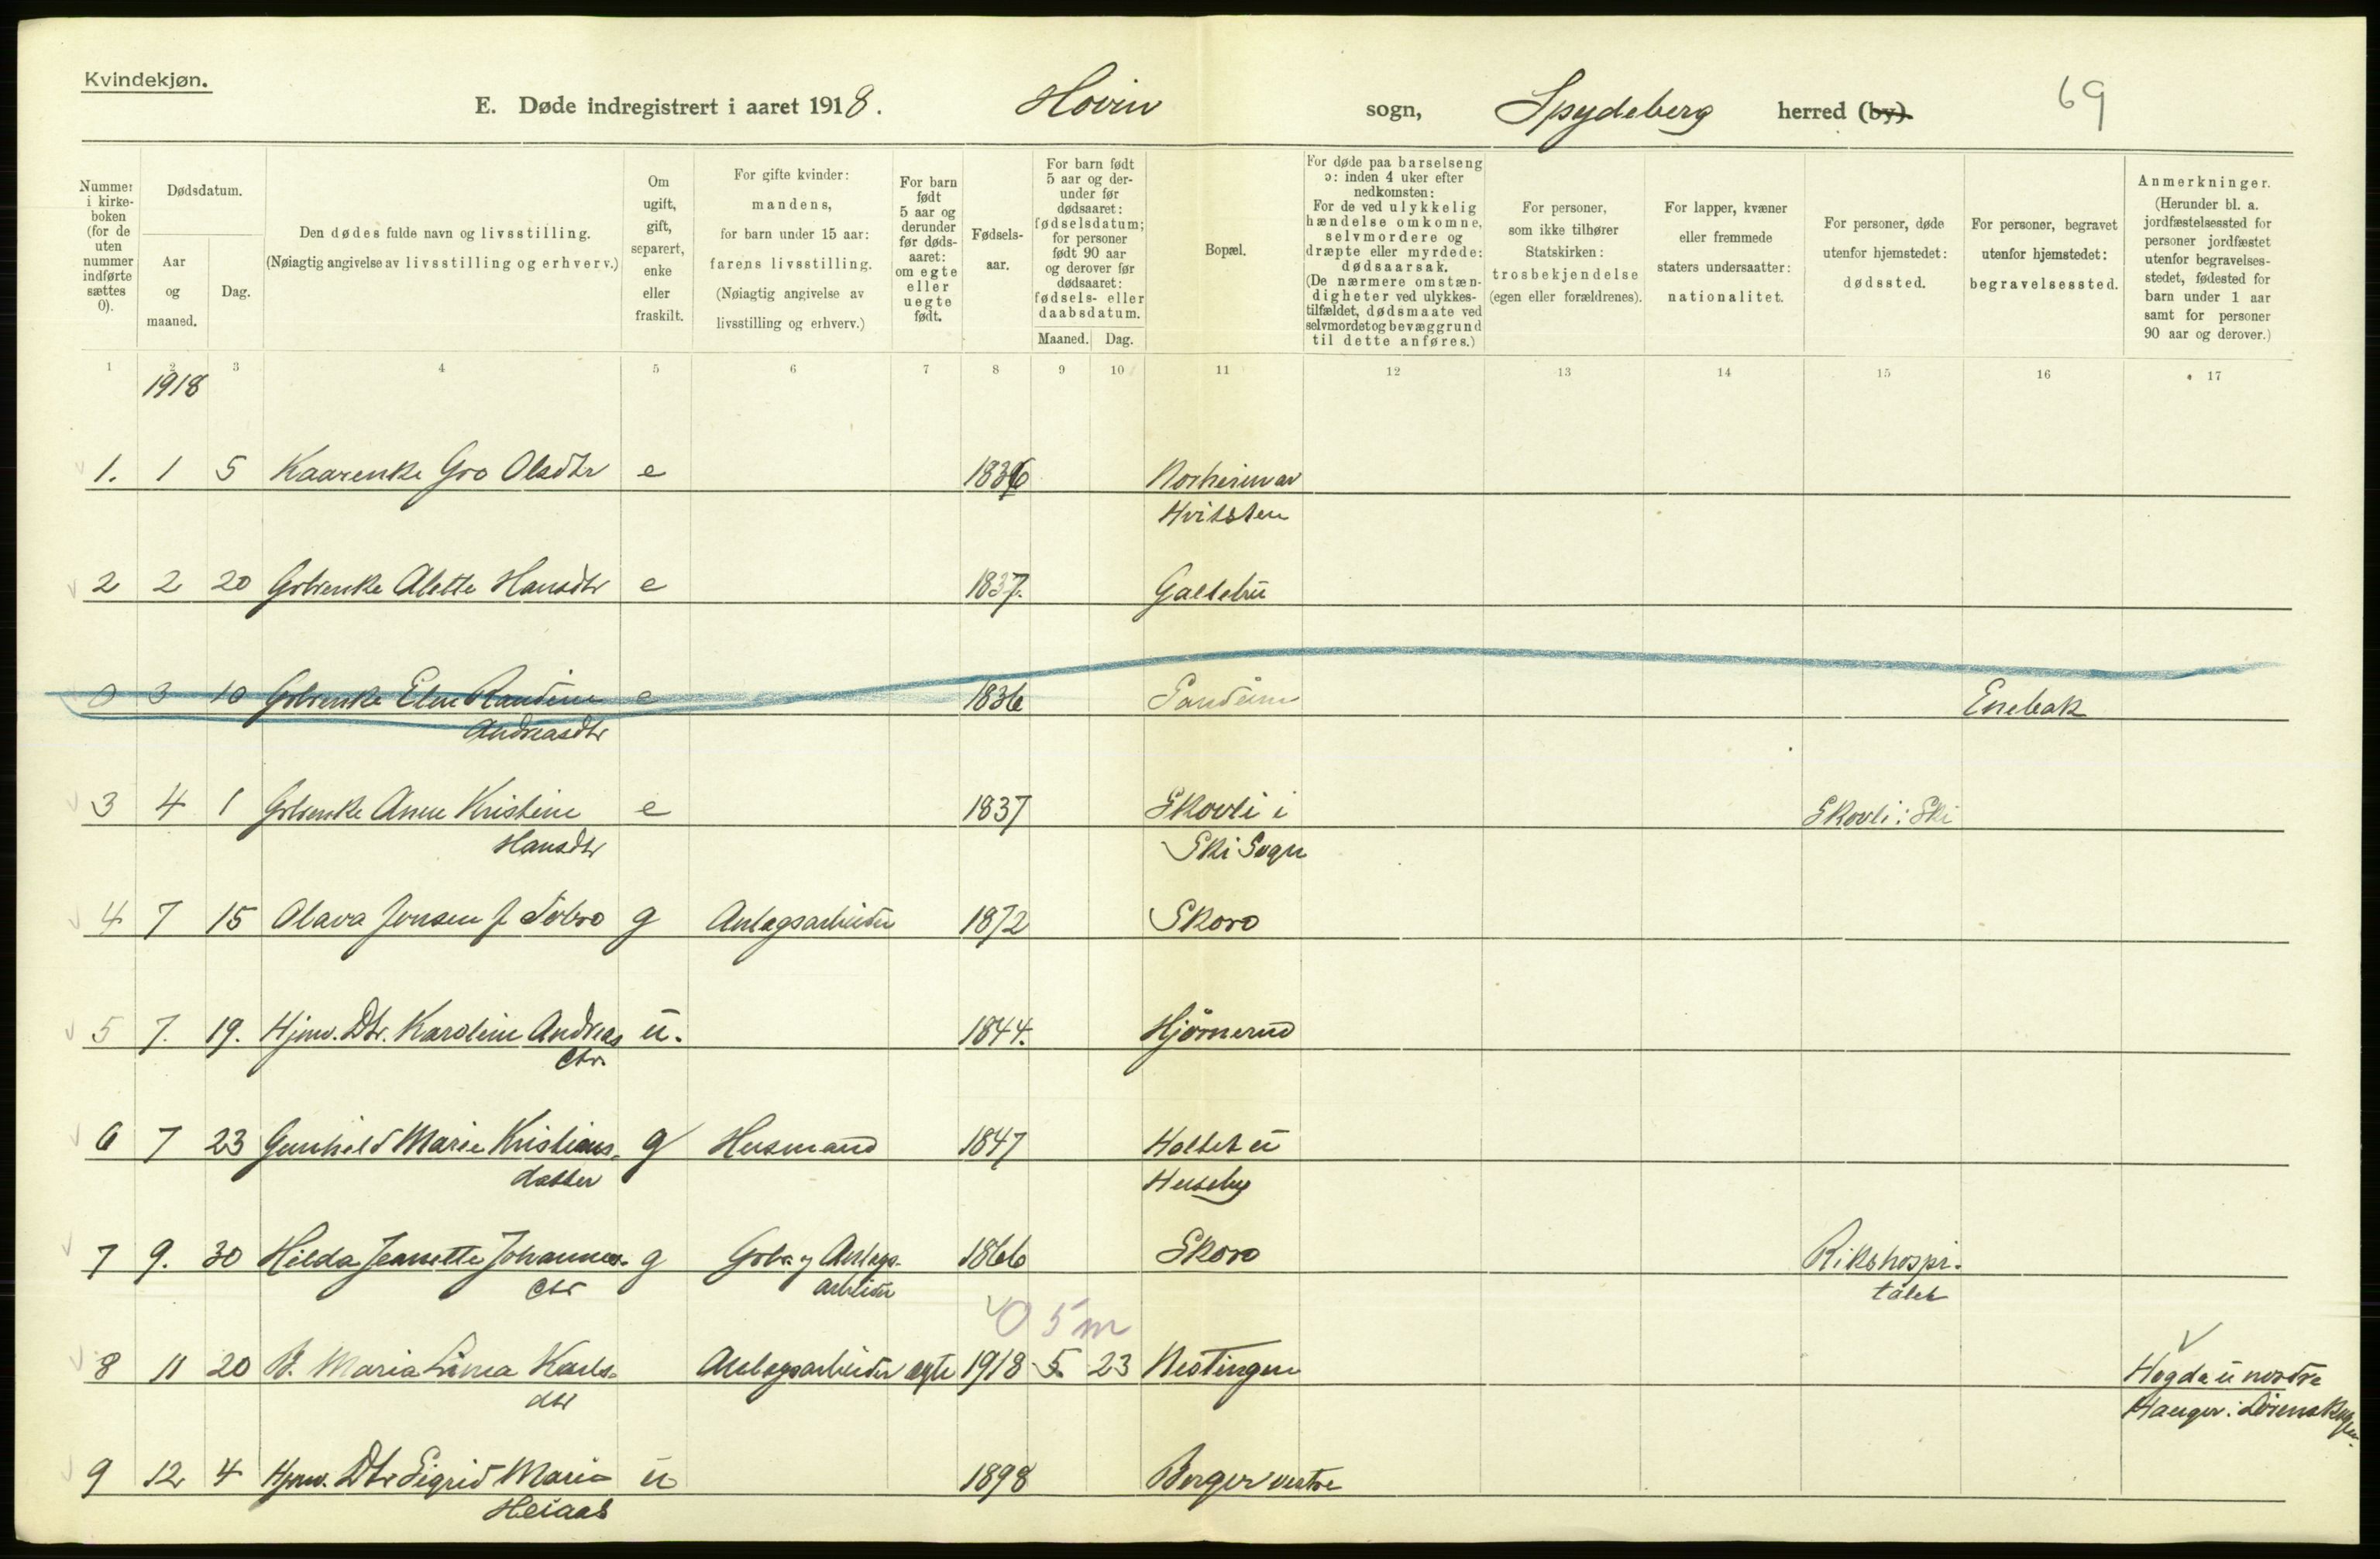 Kvindekjøn.
E. Døde indregistrert i aaret 1918. Hovin sogn, Spydeberg herred (by). 69
Nummer
i kirke-
boken
(for de
uten
nummer
indførte
sættes
0).
Dødsdatum.
Aar
og
maaned.
Dag.
Den dødes fulde navn og livsstilling.
(Nøiagtig angivelse av livsstilling og erhverv.)
Om
ugift,
gift,
separert,
enke
eller
fraskilt.
For gifte kvinder:
mandens,
for barn under 15 aar:
farens livsstilling.
(Nøiagtig angivelse av
livsstilling og erhverv.)
For barn
født
5 aar og
derunder
før døds-
aaret:
om egte
eller
uegte
født.
Fødsels-
aar.
For barn født
5 aar og der-
under før
dødsaaret:
fødselsdatum;
for personer
født 90 aar
og derover før
dødsaaret:
fødsels- eller
daabsdatum.
Maaned. Dag.
Bopæl.
For døde paa barselseng
ɔ: inden 4 uker efter
nedkomsten:
For de ved ulykkelig
hændelse omkomne,
selvmordere og
dræpte eller myrdede:
dødsaarsak.
(De nærmere omstæn-
digheter ved ulykkes-
tilfældet, dødsmaate ved
selvmordet og bevæggrund
til dette anføres.)
For personer,
som ikke tilhører
Statskirken:
trosbekjendelse
(egen eller forældrenes).
For lapper, kvæner
eller fremmede
staters undersaatter:
nationalitet.
For personer, døde
utenfor hjemstedet:
dødssted.
For personer, begravet
utenfor hjemstedet:
begravelsessted.
Anmerkninger.
(Herunder bl. a.
jordfæstelsessted for
personer jordfæstet
utenfor begravelses-
stedet, fødested for
barn under 1 aar
samt for personer
90 aar og derover.)
1 2 3 4 5 6 7 8 9 10 11 12 13 14 15 16 17
1918
1. 1 5 Kaarenke Gro Olsdtr e 1836 Norheim av
Hvitsten
2 2 20 Gbrenke Alette Hansdtr e 1837. Galtebü
0 3 10 Gbrenke Elen Randine e 1836 Enebak
Andreasdtr
3 4 1 Gbrenke Anne Kristine e 1837 Skovli i Skovli i Ski
Hansdtr Ski Sogn
4 7 15 Olava Jensen f. g Anlagsarbeider 1872 Skoro
5 7. 19. Hjmv. Dtr. Karoline Andreas ü. 1844. Hjörnerud
dtr.
6 7 23 Gunhild Marie Kristians- g Husmand 1847 Holtet ü
datter Huseby
7 9. 30 Hilda Jeanette Johannes- g Gbr. og Anlags- 1866 Skoro Rikshospi-
dtr arbeider talet
0 5 m
8 11 20 B. Maria Karls- Anlagsarbeider egte 1918 5 23 Nestingen Høgda ü nordre
dtr Hauger i
9 12 4 Hjmv. Dtr Sigrid Marie ü 1898 Berger vestre
Heiaas